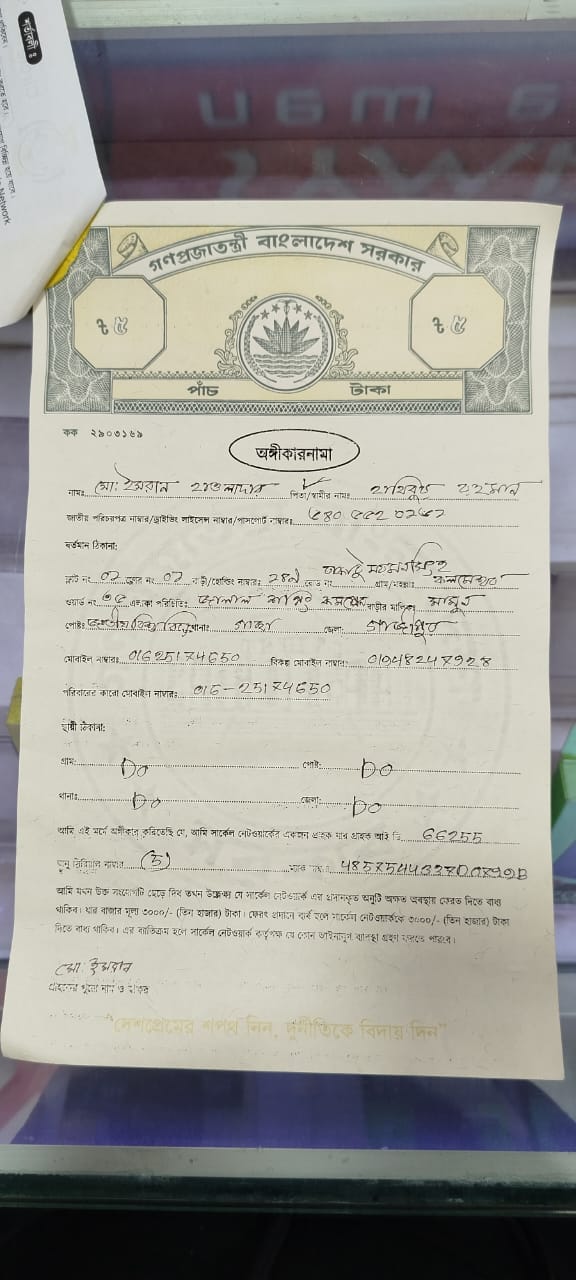 শর্তাবলী :
Network
গণপ্রজাতন্ত্রী বাংলাদেশ সরকার
৳ ৫ ৳ ৫
পাঁচ টাকা
কক ২৯০৩১৬৯
অঙ্গীকারনামা
নামঃ মো: ইমরান হাওলাদার পিতা/স্বামীর নামঃ রহমান
জাতীয় পরিচয়পত্র নাম্বার/ড্রাইভিং লাইসেন্স নাম্বার/পাসপোর্ট নাম্বারঃ
বর্তমান ঠিকানা:
ফ্লাট নং 02 ফ্লোর নং 02 বাড়ী/হোল্ডিং নাম্বারঃ রোড নং গ্রাম/মহল্লাঃ কলমেশ্বর
ওয়ার্ড নং ৩৫ এলাকা পরিচিতিঃ জালাল বাড়ীর মালিকঃ মামুন
পোষ্টঃ জাতীয় বিশ্ববিদ্যালয় থানাঃ গাছা জেলা: গাজীপুর
মোবাইল নাম্বারঃ 01625174650 বিকল্প মোবাইল নাম্বারঃ
পরিবারের কারো মোবাইল নাম্বারঃ 016-25174650
স্থায়ী ঠিকানা:
গ্রাম: Do পোষ্ট: Do
থানাঃ Do জেলা: Do
আমি এই মর্মে অঙ্গীকার করিতেছি যে, আমি সার্কেল নেটওয়ার্কের একজন গ্রাহক যার গ্রাহক আই ডি 66255
অনু সিরিয়াল নাম্বার (3)
আমি যখন উক্ত সংযোগটি ছেড়ে দিব তখন উল্লেখ্য যে সার্কেল নেটওয়ার্ক এর প্রদানকৃত অনুটি অক্ষত অবস্থায় ফেরত দিতে বাধ্য
থাকিব। যার বাজার মূল্য ৩০০০/- (তিন হাজার) টাকা। ফেরৎ প্রদানে ব্যর্থ হলে সার্কেল নেটওয়ার্ককে ৩০০০/- (তিন হাজার) টাকা
দিতে বাধ্য থাকিব। এর ব্যতিক্রম হলে সার্কেল নেটওয়ার্ক কর্তৃপক্ষ যে কোন আইনানুগ ব্যবস্থা গ্রহণ করতে পারবে।
মো: ইমরান
গ্রাহকের পুরো নাম ও স্বাক্ষর
"দেশপ্রেমের শপথ নিন, দুর্নীতিকে বিদায় দিন"